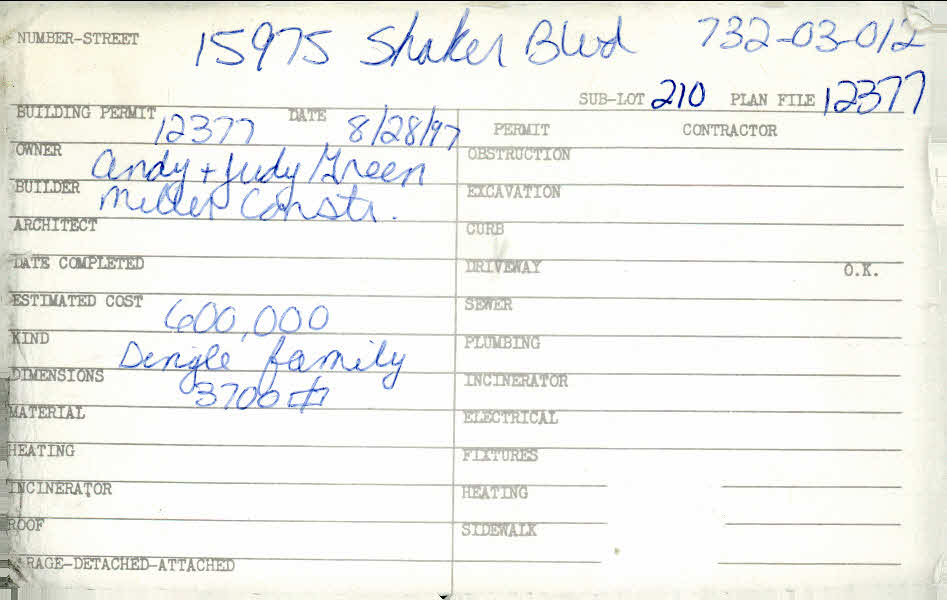 NUMBER-STREET 15975 Shaker Blvd 732-03-012
SUB-LOT 210 PLAN FILE 12377
BUILDING PERMIT 12377 DATE 8/28/97
OWNER Andy + Judy Green
BUILDER Miller Constr.
ARCHITECT
DATE COMPLETED
ESTIMATED COST 600,000
KIND Single family
DIMENSIONS 3700 #
MATERIAL
HEATING
INCINERATOR
ROOF
GARAGE-DETACHED-ATTACHED
PERMIT CONTRACTOR
OBSTRUCTION
EXCAVATION
CURB
DRIVEWAY O.K.
SEWER
PLUMBING
INCINERATOR
ELECTRICAL
FIXTURES
HEATING
SIDEWALK